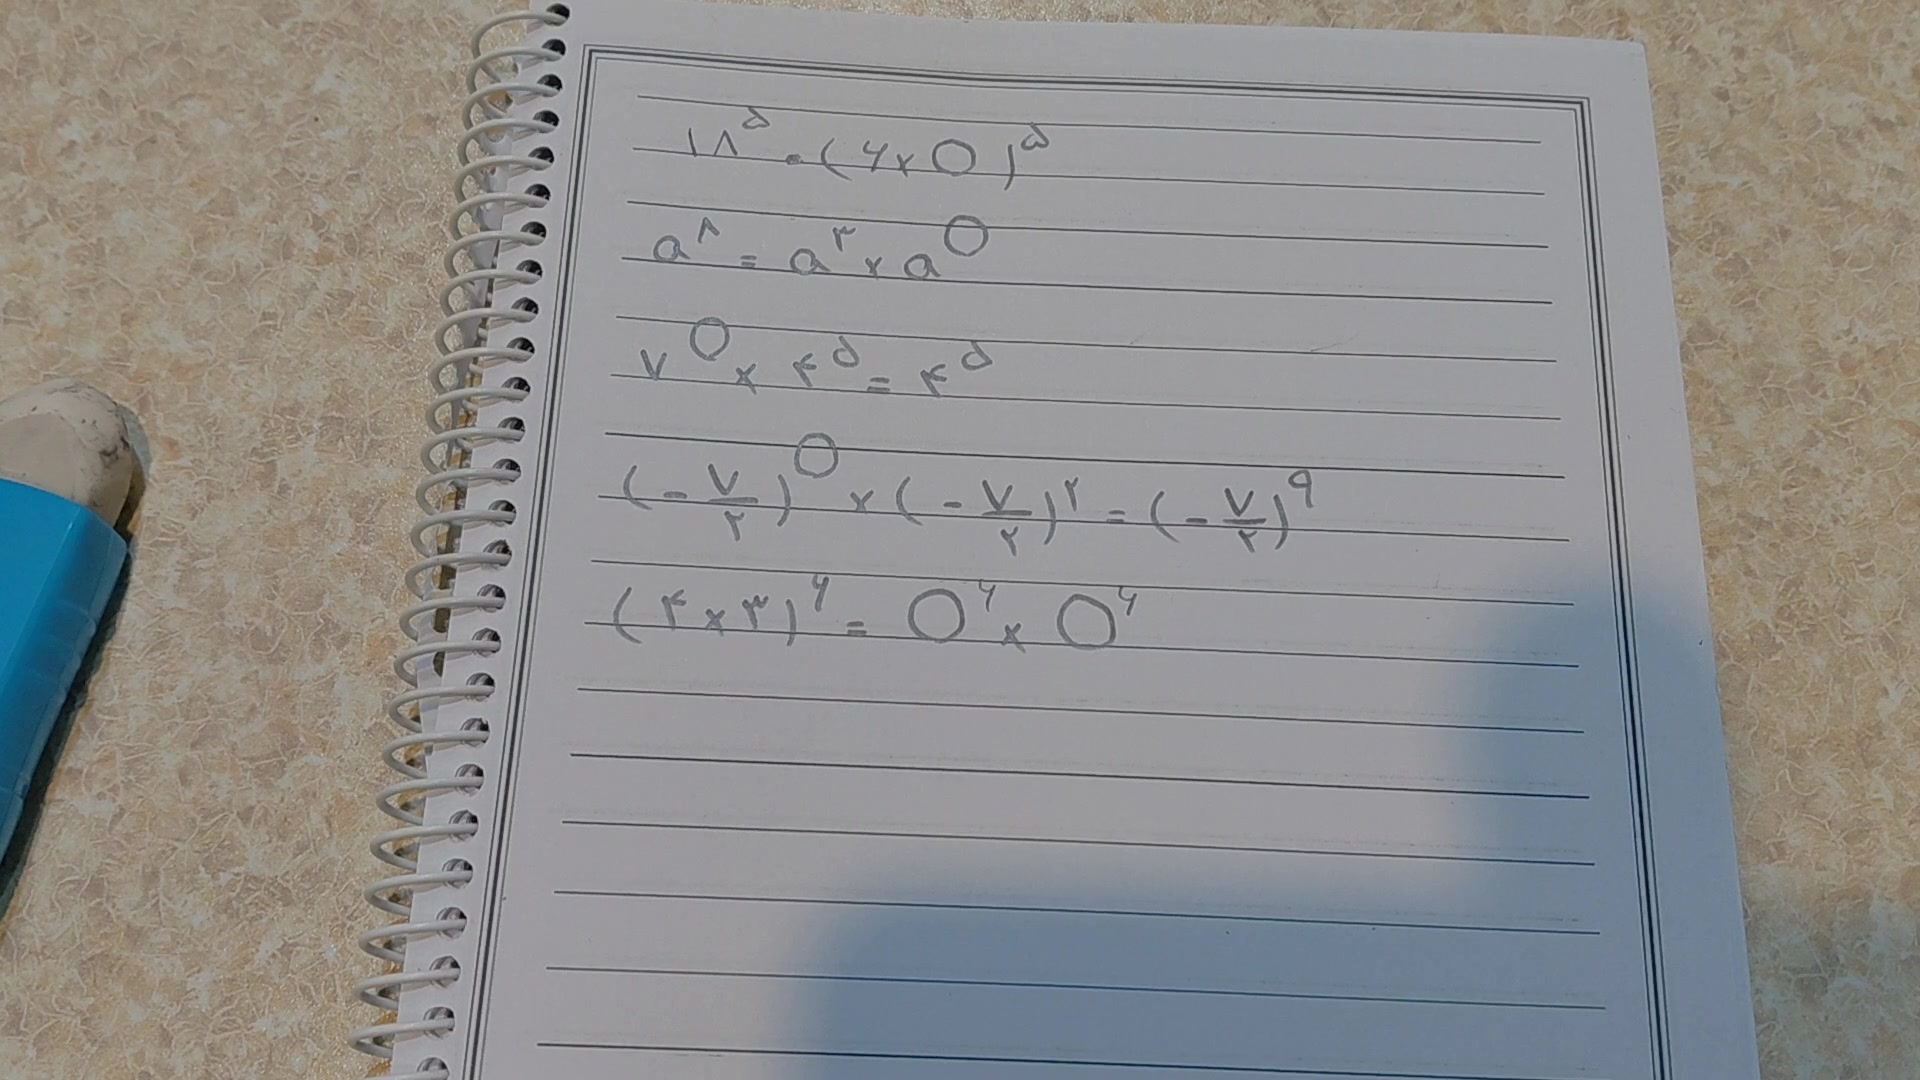 ۱۸^۵ = (۶×○)^۵
a^۸ = a^۳ × a^○
۷^○ × ۴^۵ = ۴^۵
(-۷/۲)^○ × (-۷/۲)^۲ = (-۷/۲)^۹
(۴×۳)^۶ = ○^۶ × ○^۶